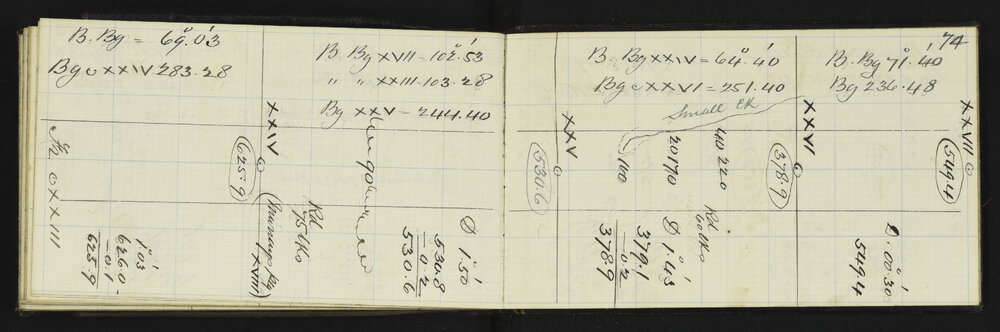 B. Bg = 69°.03'
Bg ⊙ XXIV 283.28
B. Bg XVII = 102°.53'
" " XXIII = 103.28
Bg XXV = 244.40
B. Bg XXIV = 64°.40'
Bg ⊙ XXVI = 251.40
Small CK
74
B. Bg 71°.40'
Bg 236.48
⊙ XXIII
1°.03'
626.0
-0.1
625.9
XXIV ⊙
625.9
Rd
75 lks
XVIII
D 1°.50'
530.8
-0.2
530.6
XXV ⊙
530.6
100
20170
40220
Rd
60 lks
D 1°.43'
379.1
-0.2
378.9
XXVI ⊙
378.9
D. 00°.30'
549.4
XXVII ⊙
549.4